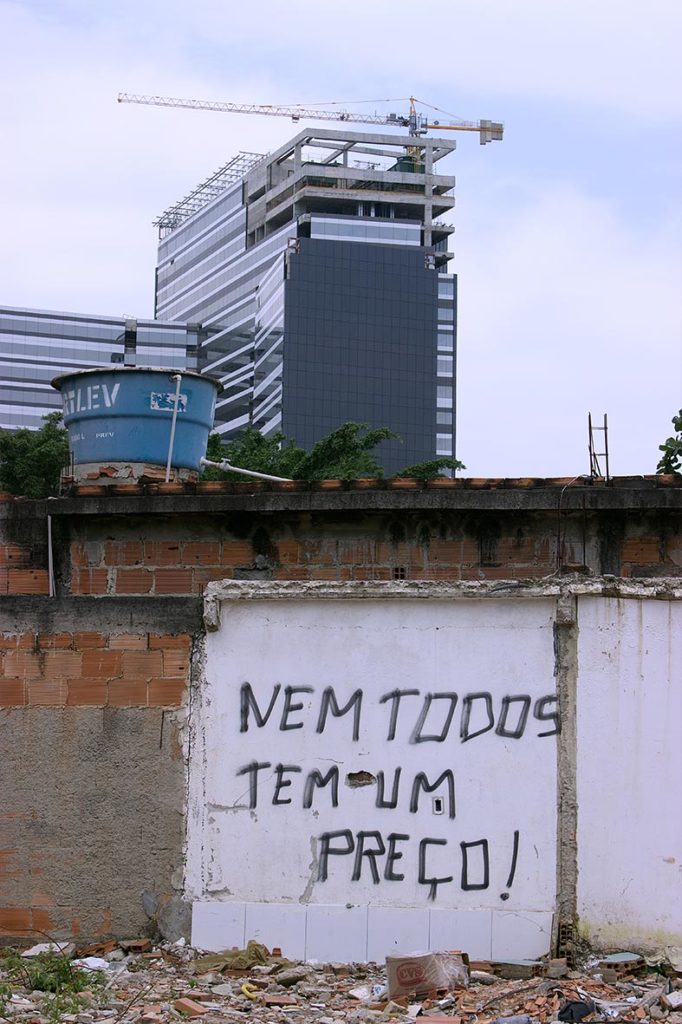 NEM TODOS
TEM UM
PREÇO!